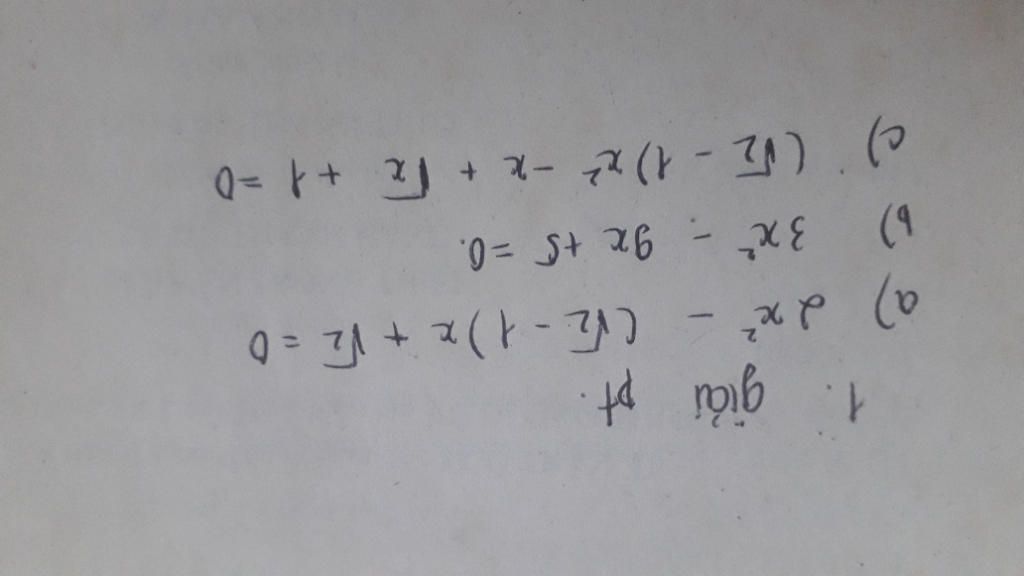 1. giải pt.
a) 2x² - (√2 - 1)x + √2 = 0
b) 3x² - 9x + 5 = 0.
c) (√2 - 1)x² - x + √x + 1 = 0